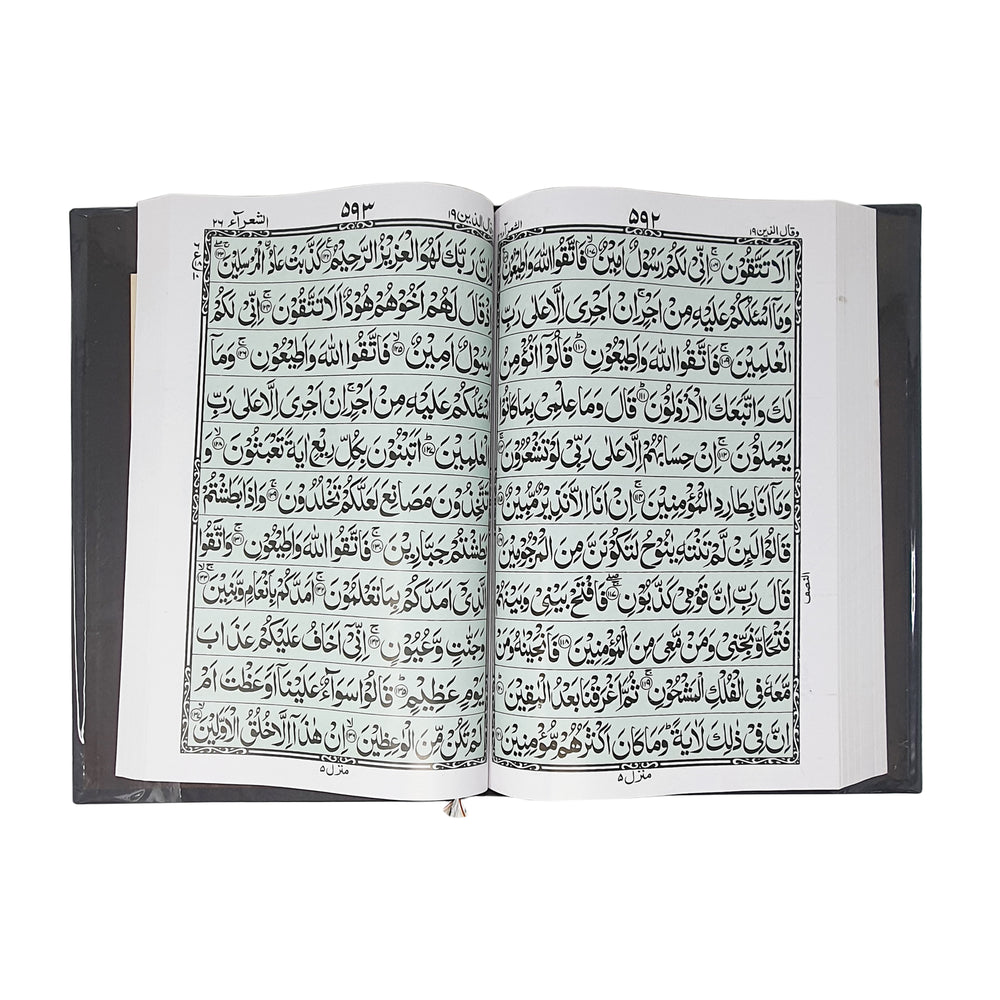 وقال الذین ۱۹
۵۹۲
الشعرآء
اَلَا تَتَّقُوْنَ ۝ۚ۱۰۶ اِنِّیْ لَكُمْ رَسُوْلٌ اَمِیْنٌ ۝ۙ۱۰۷ فَاتَّقُوا اللّٰهَ وَاَطِیْعُوْنِ
وَمَاۤ اَسْـَٔلُكُمْ عَلَیْهِ مِنْ اَجْرٍ ۚ اِنْ اَجْرِیَ اِلَّا عَلٰی رَبِّ
الْعٰلَمِیْنَ ۝ۚ۱۰۹ فَاتَّقُوا اللّٰهَ وَاَطِیْعُوْنِ ۝ؕ۱۱۰ قَالُوْۤا اَنُؤْمِنُ
لَكَ وَاتَّبَعَكَ الْاَرْذَلُوْنَ ۝ؕ۱۱۱ قَالَ وَمَا عِلْمِیْ بِمَا كَانُوْا
یَعْمَلُوْنَ ۝ۚ۱۱۲ اِنْ حِسَابُهُمْ اِلَّا عَلٰی رَبِّیْ لَوْ تَشْعُرُوْنَ
وَمَاۤ اَنَا بِطَارِدِ الْمُؤْمِنِیْنَ ۝ۚ۱۱۴ اِنْ اَنَا اِلَّا نَذِیْرٌ مُّبِیْنٌ
قَالُوْا لَىِٕنْ لَّمْ تَنْتَهِ یٰنُوْحُ لَتَكُوْنَنَّ مِنَ الْمَرْجُوْمِیْنَ
قَالَ رَبِّ اِنَّ قَوْمِیْ كَذَّبُوْنِ ۝ۚۖ۱۱۷ فَافْتَحْ بَیْنِیْ وَبَیْنَهُمْ
فَتْحًا وَّنَجِّنِیْ وَمَنْ مَّعِیَ مِنَ الْمُؤْمِنِیْنَ ۝۱۱۸ فَاَنْجَیْنٰهُ وَمَنْ
مَّعَهٗ فِی الْفُلْكِ الْمَشْحُوْنِ ۝ۚ۱۱۹ ثُمَّ اَغْرَقْنَا بَعْدُ الْبٰقِیْنَ
اِنَّ فِیْ ذٰلِكَ لَاٰیَةً ؕ وَمَا كَانَ اَكْثَرُهُمْ مُّؤْمِنِیْنَ
النصف
منزل ۵
وقال الذین ۱۹
۵۹۳
الشعرآء ۲۶
وَاِنَّ رَبَّكَ لَهُوَ الْعَزِیْزُ الرَّحِیْمُ ۝۱۲۲ كَذَّبَتْ عَادُ اِ۟لْمُرْسَلِیْنَ ۝ۚۖ۱۲۳
اِذْ قَالَ لَهُمْ اَخُوْهُمْ هُوْدٌ اَلَا تَتَّقُوْنَ ۝ۚ۱۲۴ اِنِّیْ لَكُمْ
رَسُوْلٌ اَمِیْنٌ ۝ۙ۱۲۵ فَاتَّقُوا اللّٰهَ وَاَطِیْعُوْنِ ۝ۚ۱۲۶ وَمَاۤ
اَسْـَٔلُكُمْ عَلَیْهِ مِنْ اَجْرٍ ۚ اِنْ اَجْرِیَ اِلَّا عَلٰی رَبِّ
الْعٰلَمِیْنَ ۝ؕ۱۲۷ اَتَبْنُوْنَ بِكُلِّ رِیْعٍ اٰیَةً تَعْبَثُوْنَ ۝ۙ۱۲۸ وَ
تَتَّخِذُوْنَ مَصَانِعَ لَعَلَّكُمْ تَخْلُدُوْنَ ۝ۚ۱۲۹ وَاِذَا بَطَشْتُمْ
بَطَشْتُمْ جَبَّارِیْنَ ۝ۚ۱۳۰ فَاتَّقُوا اللّٰهَ وَاَطِیْعُوْنِ ۝ۚ۱۳۱ وَاتَّقُوا
الَّذِیْۤ اَمَدَّكُمْ بِمَا تَعْلَمُوْنَ ۝ۚ۱۳۲ اَمَدَّكُمْ بِاَنْعَامٍ وَّبَنِیْنَ ۝ۚۙ۱۳۳
وَجَنّٰتٍ وَّعُیُوْنٍ ۝ۚ۱۳۴ اِنِّیْۤ اَخَافُ عَلَیْكُمْ عَذَابَ
یَوْمٍ عَظِیْمٍ ۝ؕ۱۳۵ قَالُوْا سَوَآءٌ عَلَیْنَاۤ اَوَعَظْتَ اَمْ
لَمْ تَكُنْ مِّنَ الْوٰعِظِیْنَ ۝ۙ۱۳۶ اِنْ هٰذَاۤ اِلَّا خُلُقُ الْاَوَّلِیْنَ ۝ۙ۱۳۷
منزل ۵